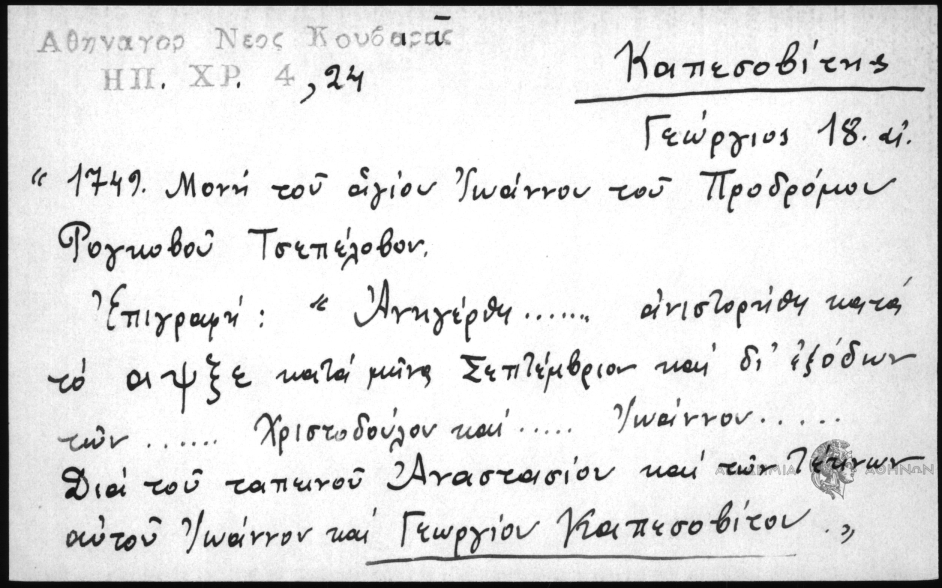 Αθηναγορ Νεος Κουβαρᾶς
ΗΠ. ΧΡ. 4, 24
Καπεσοβίτης
Γεώργιος 18. αἰ.
“ 1749. Μονή τοῦ ἁγίου Ἰωάννου τοῦ Προδρόμου
Ρογκοβοῦ Τσεπέλοβον.
Ἐπιγραφή : “ Ἀνηγέρθη ....... ἀνιστορήθη κατά
τό αιψξε κατά μῆνα Σεπτέμβριον καί δι’ ἐξόδων
τῶν ...... Χριστοδούλου καί ..... Ἰωάννου .....
Διά τοῦ ταπεινοῦ Ἀναστασίου καί τῶν τέκνων
αὐτοῦ Ἰωάννου καί Γεωργίου Καπεσοβίτου .„
ΑΚΑΔΗΜΙΑ ΑΘΗΝΩΝ